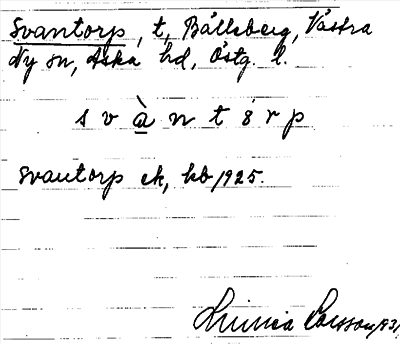 Svantorp, t, Bållsberg, Västra
Ny sn, Aska hd, Östg. l.
s v à n t ȯ r p
Svantorp ek, kb 1925.
Linnea Larsson 1931